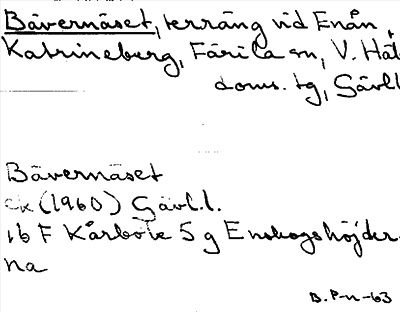 Bävernäset, terräng vid Enån,
Katrineberg, Färila sn, V. Häl
doms. tg, Gävl
Bävernäset
ek (1960) Gävl.l.
16 F Kårböle 5 g Enskogshöjder
na
B. P-n-63